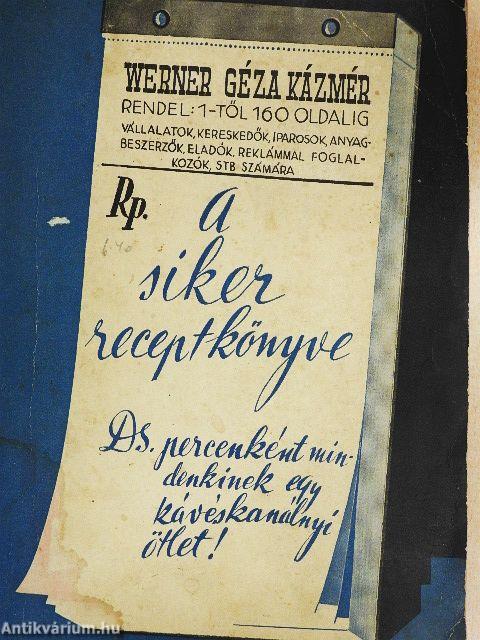 WERNER GÉZA KÁZMÉR
RENDEL: 1-TŐL 160 OLDALIG
VÁLLALATOK, KERESKEDŐK, IPAROSOK, ANYAG-
BESZERZŐK, ELADÓK, REKLÁMMAL FOGLAL-
KOZÓK, STB SZÁMÁRA
Rp. a
siker
receptkönyve
DS. percenként min-
denkinek egy
kávéskanálnyi
ötlet!
Antikvárium.hu